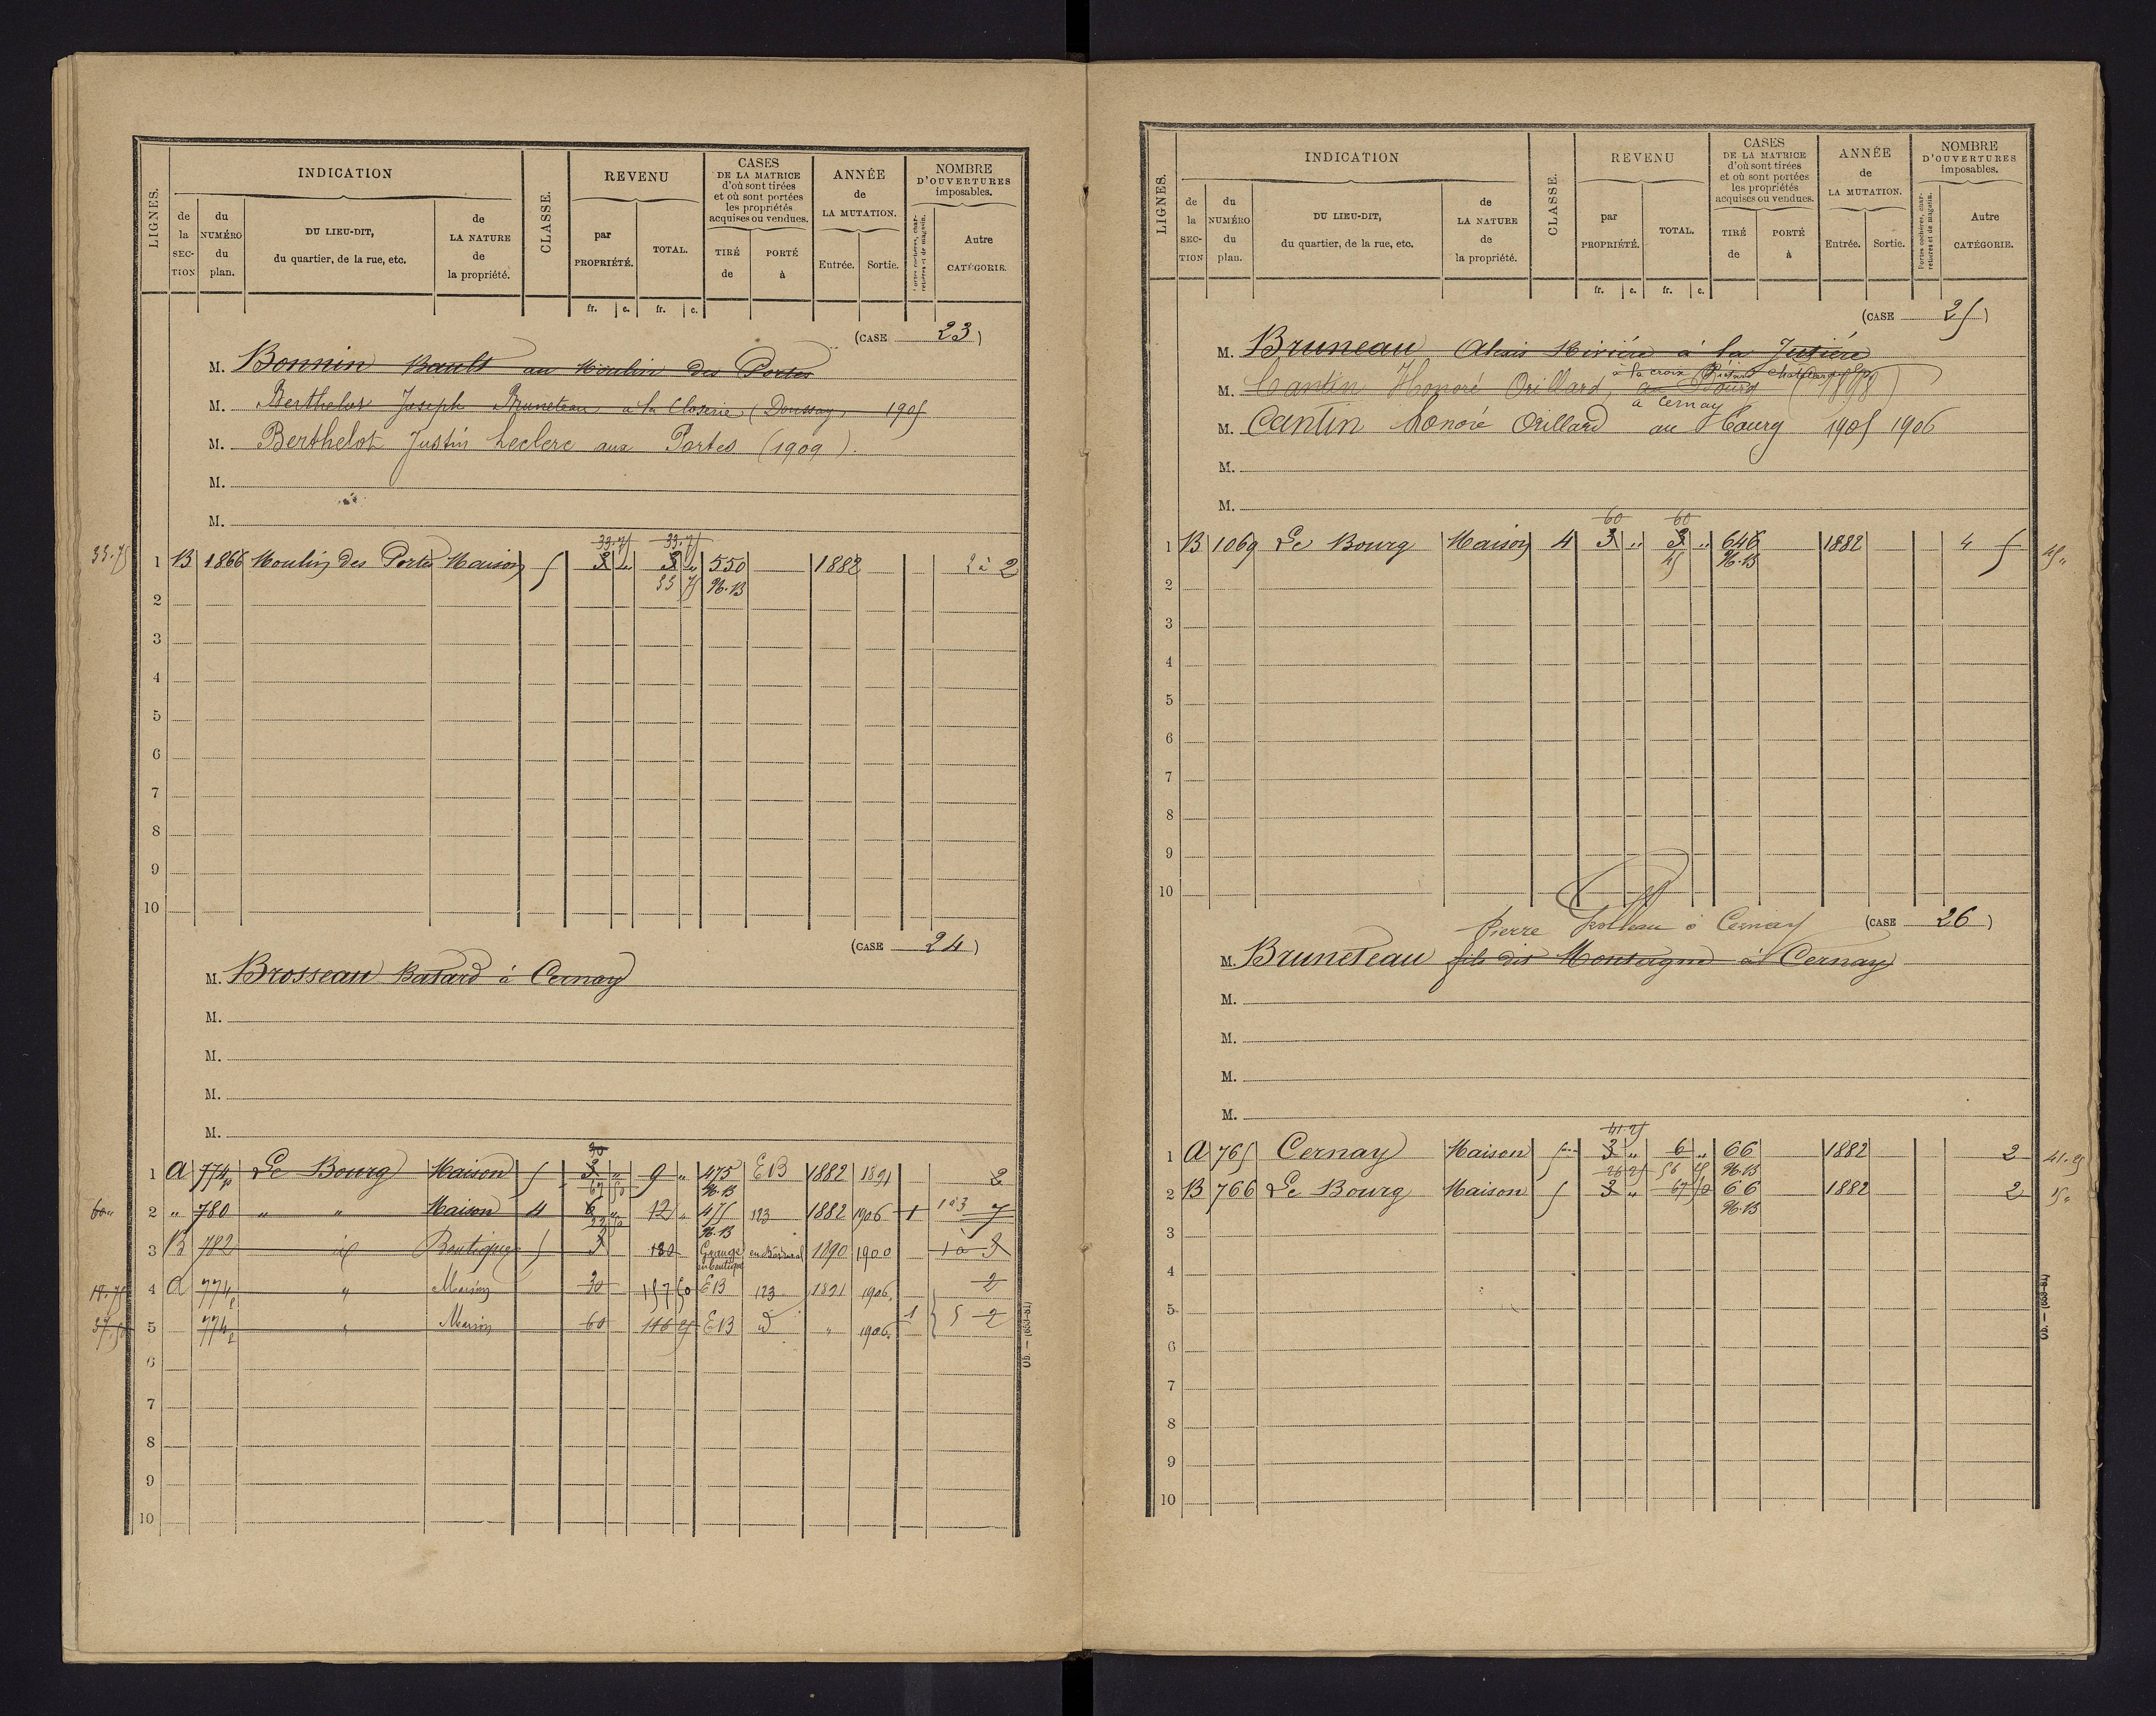 LIGNES.
INDICATION
de la SECTION
du NUMÉRO du plan.
DU LIEU-DIT, du quartier, de la rue, etc.
de LA NATURE de la propriété.
CLASSE.
REVENU
par PROPRIÉTÉ.
TOTAL.
fr. c. fr. c.
CASES DE LA MATRICE d'où sont tirées et où sont portées les propriétés acquises ou vendues.
TIRÉ de
PORTÉ à
ANNÉE de LA MUTATION.
Entrée. Sortie.
NOMBRE D'OUVERTURES imposables.
Portes cochères, charretières et de magasin.
Autre CATÉGORIE.
(CASE 23)
M. Bonnin Bault au Moulin des Portes
M. Berthelot Joseph Bruneteau à la Closerie (Doussay) 1905
M. Berthelot Justin Leclerc aux Portes (1909).
M.
M.
33.75
33.75 33.75
1 B 1866 Moulin des Portes Maison 5 3 3 550 1882 2 à 2
33 75 96.B
2
3
4
5
6
7
8
9
10
(CASE 24)
M. Brosseau Batard à Cernay
M.
M.
M.
M.
30
1 A 774p Le Bourg Maison 5 3 " 9 " 475 EB 1882 1891 2
67 50 96.B
60 " 2 " 780 " " Maison 4 6 " 12 " 475 123 1882 1906 1 1 à 3 7
22 50 96.B
3 B 782 id Boutique 5 3 180 Grange en boutique 1890 1900 1 à 3
4 A 774p " Maison 30 157 50 EB 123 1891 1906 2
37.50 5 774p " Maison 60 116 25 EB d " 1906 1 5 2
6
7
8
9
10
Ub. — (653-81)
LIGNES.
INDICATION
de la SECTION
du NUMÉRO du plan.
DU LIEU-DIT, du quartier, de la rue, etc.
de LA NATURE de la propriété.
CLASSE.
REVENU
par PROPRIÉTÉ.
TOTAL.
fr. c. fr. c.
CASES DE LA MATRICE d'où sont tirées et où sont portées les propriétés acquises ou vendues.
TIRÉ de
PORTÉ à
ANNÉE de LA MUTATION.
Entrée. Sortie.
NOMBRE D'OUVERTURES imposables.
Portes cochères, charretières et de magasin.
Autre CATÉGORIE.
(CASE 25)
M. Bruneau Alexis Rivière à la
à la croix
M. Cantin Honoré Orillard, au Bourg (1898)
à Cernay
M. Cantin honoré Orillard au Bourg 1905 1906
M.
M.
60 60
1 B 1069 Le Bourg Maison 4 3 " 3 " 646 1882 4 5 45 "
45 96.B
2
3
4
5
6
7
8
9
10
Pierre à Cernay
(CASE 26)
M. Bruneteau fils dit Montaigne à Cernay
M.
M.
M.
M.
41 25
1 A 765 Cernay Maison 5 3 " 6 " 66 1882 2 41.25
26 25 56 25 96.B
2 B 766 Le Bourg Maison 5 3 " 67 50 66 1882 2 15 "
96.B
3
4
5
6
7
8
9
10
Ub. — (653-81)